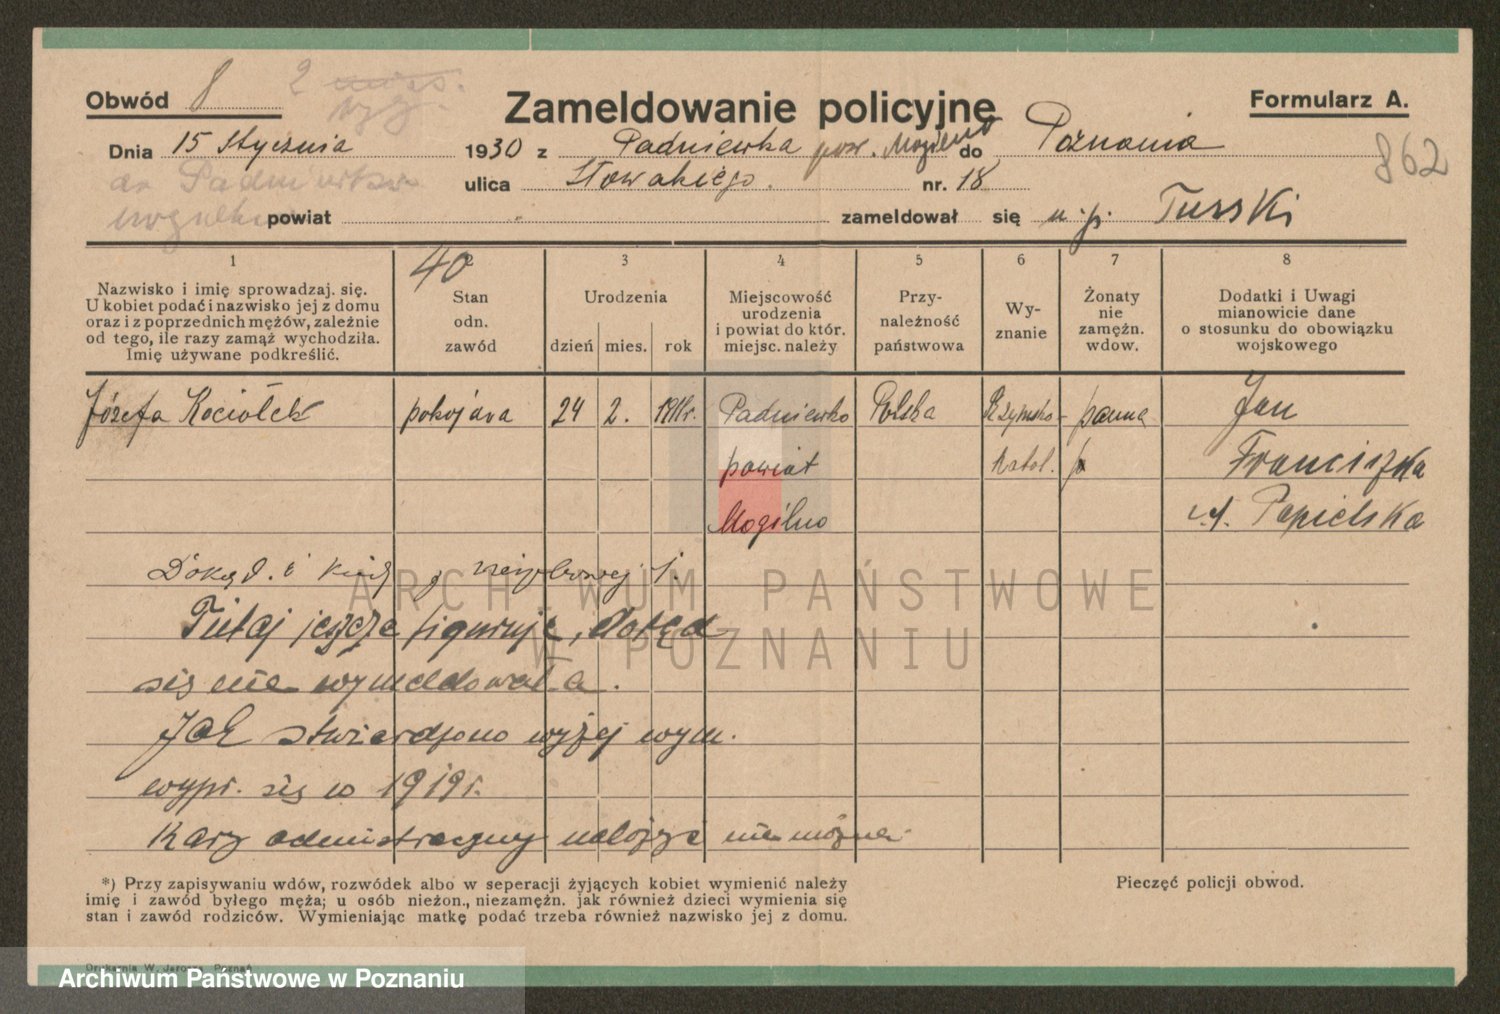 Obwód 8 2
Zameldowanie policyjne
Formularz A.
862
Dnia 15 Stycznia 1930 z Padniewka pow. Mogilno do Poznania
ulica Słowackiego. nr. 18
powiat zameldował się u p. Turski
1 2 3 4 5 6 7 8
40
Nazwisko i imię sprowadzaj. się.
U kobiet podać i nazwisko jej z domu
oraz i z poprzednich mężów, zależnie
od tego, ile razy zamąż wychodziła.
Imię używane podkreślić.
Stan
odn.
zawód
Urodzenia
dzień mies. rok
Miejscowość
urodzenia
i powiat do któr.
miejsc. należy
Przy-
należność
państwowa
Wy-
znanie
Żonaty
nie
zamężn.
wdow.
Dodatki i Uwagi
mianowicie dane
o stosunku do obowiązku
wojskowego
Józefa Kociołek pokojowa 24 2. 1911r. Padniewko Polska Rzymsko- panna Jan
powiat katol. Franciszka
Mogilno Papielska
Tutaj jeszcze figuruje, dotąd
się nie wymeldowała.
Jak stwierdzono wyżej wym.
wypr. się w 1919r.
Kary administracyjny nałożyć nie można
*) Przy zapisywaniu wdów, rozwódek albo w seperacji żyjących kobiet wymienić należy
imię i zawód byłego męża; u osób nieżon., niezamężn. jak również dzieci wymienia się
stan i zawód rodziców. Wymieniając matkę podać trzeba również nazwisko jej z domu.
Pieczęć policji obwod.
Drukarnia W. Poznań
ARCHIWUM PAŃSTWOWE
W POZNANIU
Archiwum Państwowe w Poznaniu